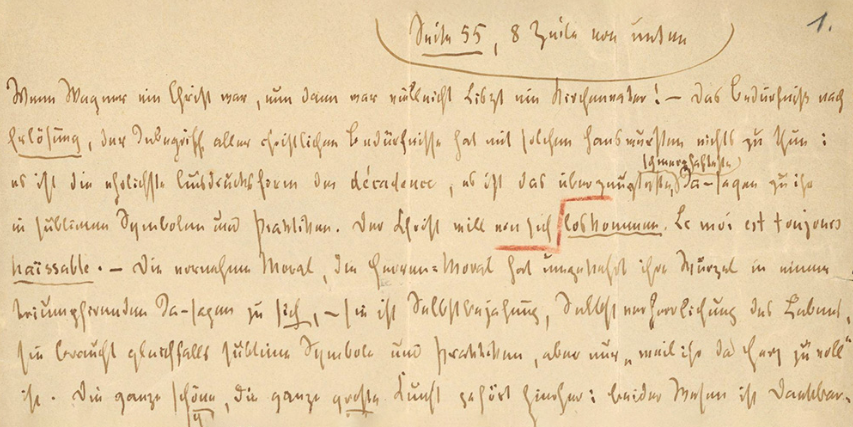 Seite 55, 8 Zeile von unten
1.
Wenn Wagner ein Christ war, nun dann war vielleicht Liszt ein Kirchenvater! — Das Bedürfniß nach
Erlösung, der Inbegriff aller christlichen Bedürfnisse hat mit solchen Hanswürsten nichts zu thun:
es ist die ehrlichste Ausdrucksform der décadence, es ist das überzeugteste, Ja-sagen zu ihr
schmerzhafteste
in sublimen Symbolen und Praktiken. Der Christ will von sich loskommen. Le moi est toujours
haïssable. — Die vornehme Moral, die Herren-Moral hat umgekehrt ihre Wurzel in einem
triumphirenden Ja-sagen zu sich, — sie ist Selbstbejahung, Selbstverherrlichung des Lebens,
sie braucht gleichfalls sublime Symbole und Praktiken, aber nur „weil ihr das Herz zu voll"
ist. Die ganze schöne, die ganze große Kunst gehört hierher: beider Wesen ist Dankbar-